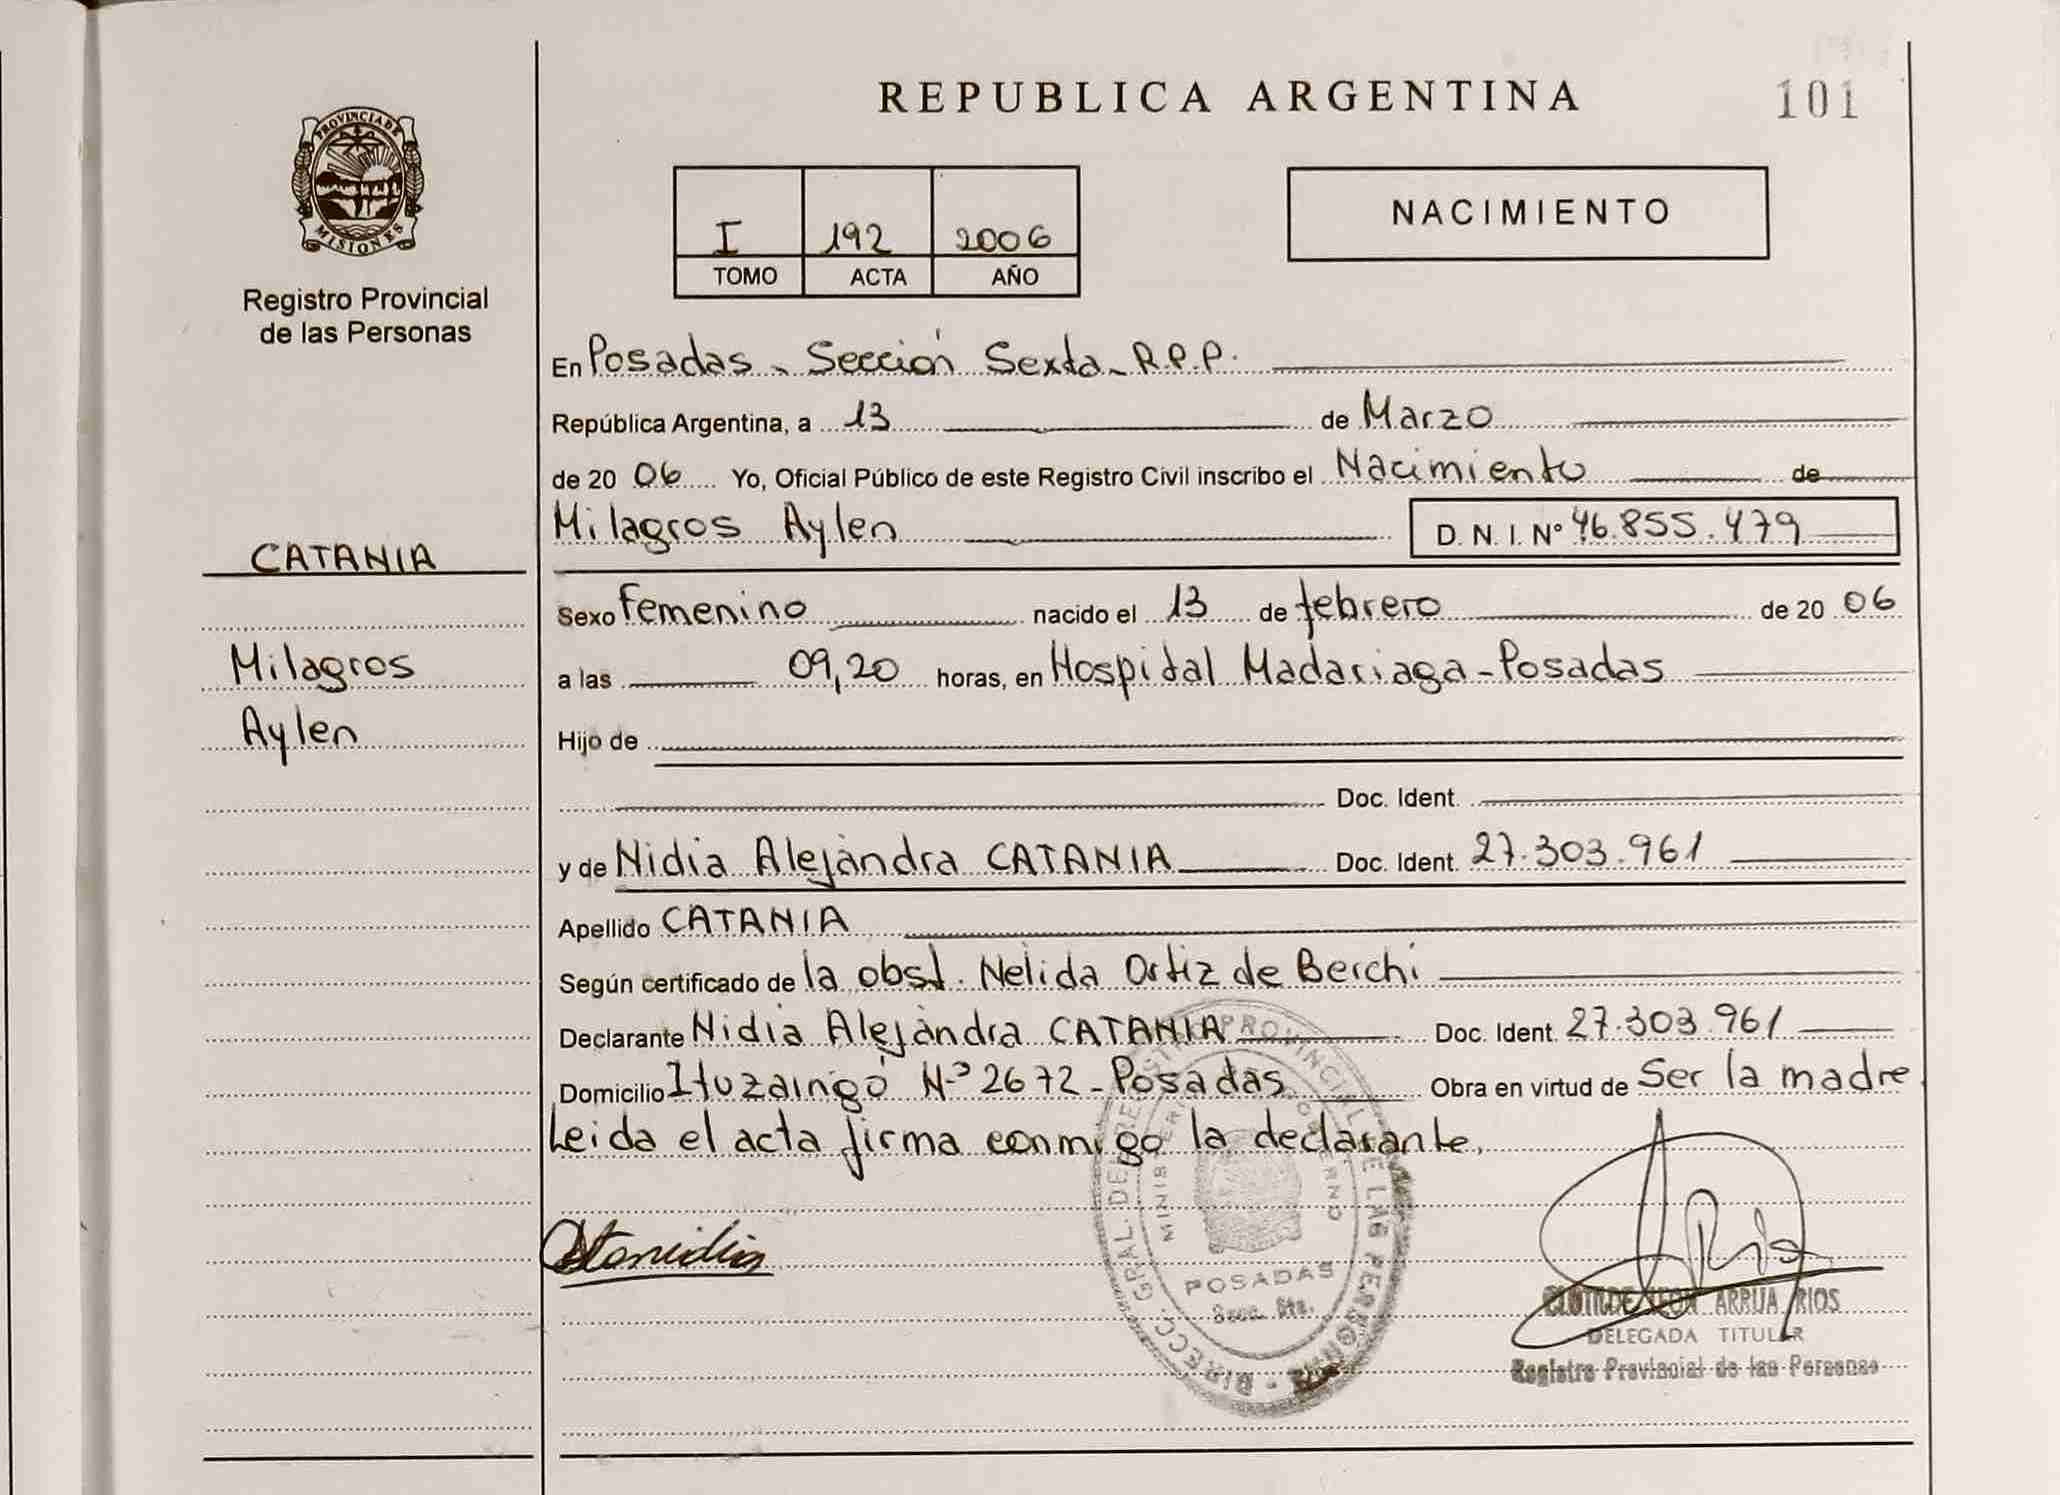 REPUBLICA ARGENTINA
101
PROVINCIA DE
MISIONES
Registro Provincial
de las Personas
I 192 2006
TOMO ACTA AÑO
NACIMIENTO
En Posadas - Sección Sexta - R.P.P.
República Argentina, a 13 de Marzo
de 20 06 Yo, Oficial Público de este Registro Civil inscribo el Nacimiento de
Milagros Aylen D. N. I. Nº 46.855.479
CATANIA
Sexo Femenino nacido el 13 de febrero de 20 06
Milagros
a las 09,20 horas, en Hospital Madariaga - Posadas
Aylen
Hijo de
Doc. Ident.
y de Nidia Alejandra CATANIA Doc. Ident. 27.303.961
Apellido CATANIA
Según certificado de la obst. Nelida Ortiz de Berchi
Declarante Nidia Alejandra CATANIA Doc. Ident. 27.303.961
Domicilio Ituzaingó Nº 2672 - Posadas Obra en virtud de Ser la madre.
Leida el acta firma conmigo la declarante.
POSADAS
Secc. 6ta.
ARRUA RIOS
DELEGADA TITULAR
Registro Provincial de las Personas